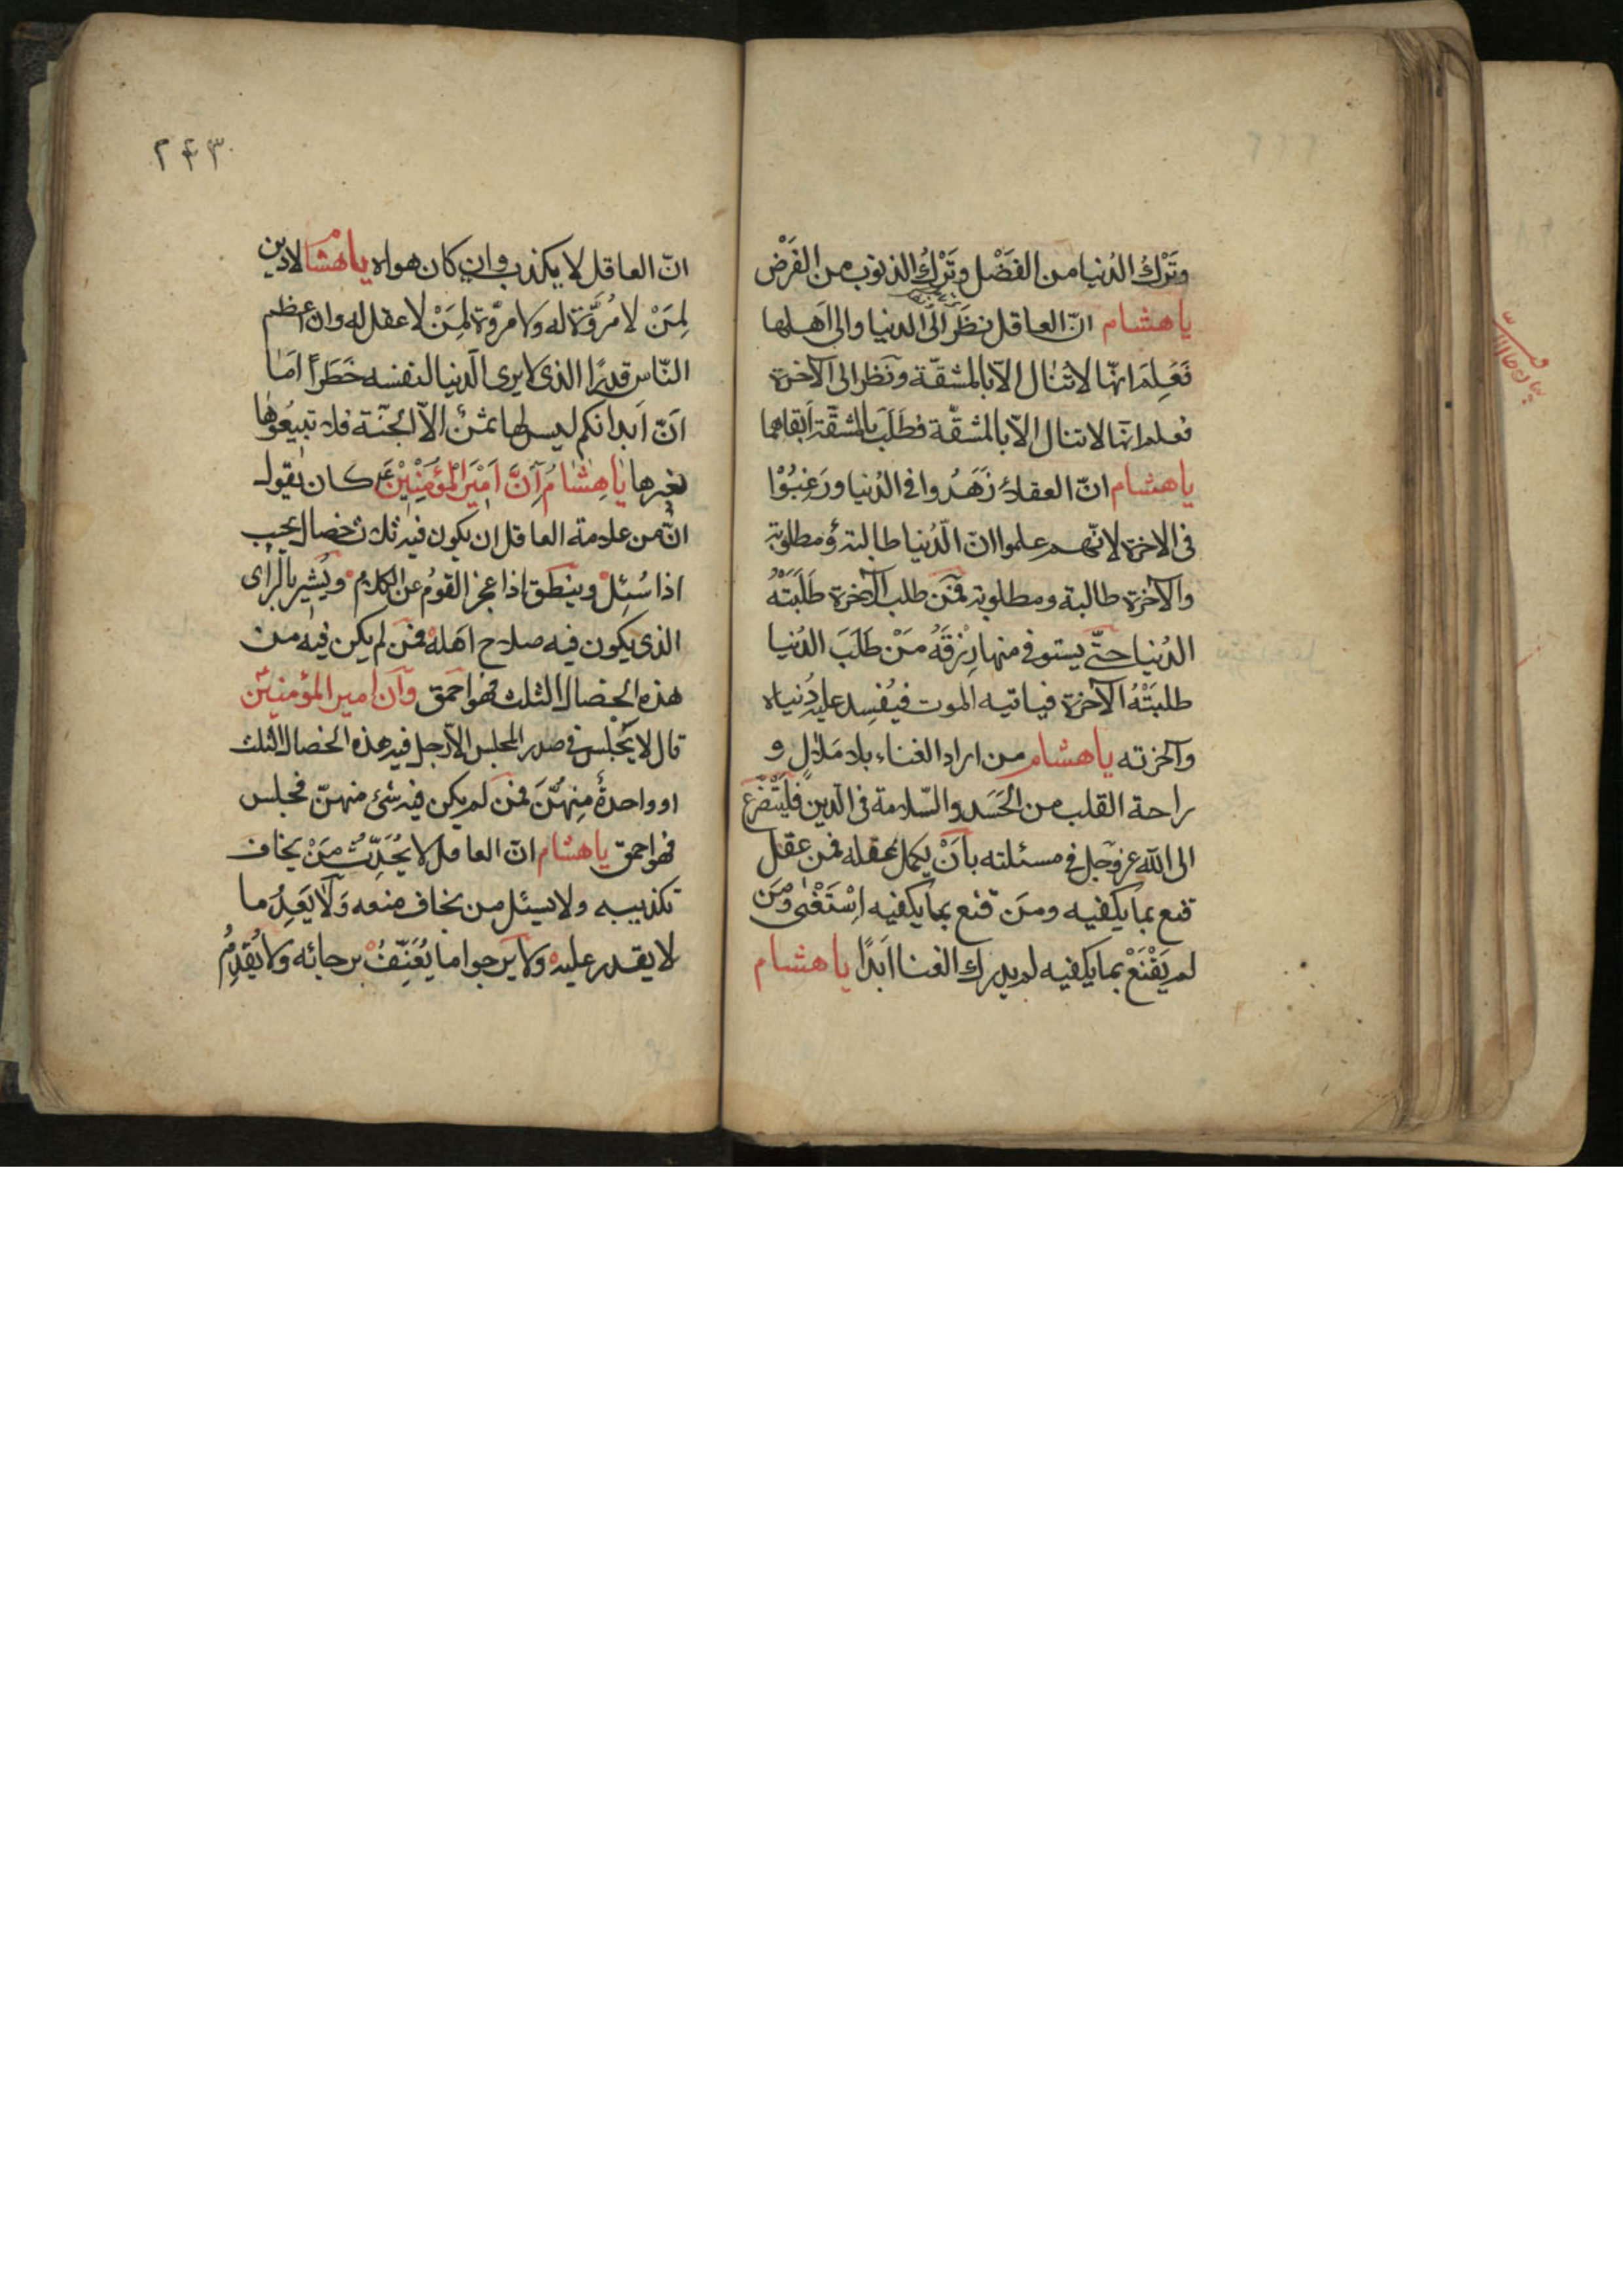 وتَرْكُ الدُنيا من الفَضْل وتَرْكُ الذنوب من الفَرْض
يا هشام انّ العاقل نظَر الَى الدنيا والى اَهلها
فَعَلِمَ انّها لاتُنٰال الاّ بالمشقّة ونَظر الى الآخرة
فعلم انّها لاتنال الاّ بالمشقّة فطَلَبَ بالمشقّة اَبقاهما
يا هشام انّ العقلاءَ زَهَدُوا فى الدُنيا ورَغِبُوْا
فى الاخرة لانّهم علموا انّ الدُّنيا طالبة ومطلوبة
والآخرة طالبة ومطلوبة فمَن طلب الآخرة طَلَبَتْهُ
الدُنيا حتّى يستوفى منها رِزقَهُ مَنْ طَلَبَ الدُنيا
طلبَتْهُ الآخرة فياتيه الموت فيُفسِد عليه دُنياه
وآخرته يا هشام من اراد الغناء بلا مَال و
راحة القلب من الحَسَد والسّلامة فى الدّين فَلْيَتَضَّرَع
الى الله عز وجل فى مسئلته بأَنْ يكمل عقله فمن عقل
قنع بما يكفيه ومَن قنع بما يكفيه اِسْتَغْنٰى ومَن
لم يَقْنَعْ بما يكفيه لم يدرك الغنا اَبَدًا يا هشام
٢۴٣
انّ العاقل لا يكذب وان كان هواه يا هشام لا دين
لِمَنْ لا مُروّة له ولا مروّة لِمَنْ لا عقل له وان اعظم
النّاس قدرًا الذى لا يرى الدنيا لنفسه خَطَراً اَمَا
اَنّ اَبدانكم ليس لها ثمن الاّ الجَنّة فلا تبيعُوهٰا
بغيرها يٰا هِشٰامُ اَنَّ اَمْيرَ الْمُؤمِنِيْنَ ع كان يقول
انّ من علامة العاقل ان يكون فيه ثلاث خصال يجيب
اذا سُئِل وينطق اذا عجز القومُ عن الكلام ويُشير بالرأى
الذى يكون فيه صلاح اَهله فمَن لم يكن فيه من
هذه الخصال الثلث فهو احمق وَاَن امير المؤمنين ع
قال لا يَجْلس فى صدر المجلس الاّ رجل فيه هذه الخصال الثلث
او واحدةٌ مِنهُنَّ فمَن لم يكن فيه شئ منهنّ فجلس
فهو احمق يا هشام انّ العاقل لا يُحَدِّثُ مَنْ يخاف
تكذيبه ولا يسئل من يخاف منعه وَلَا يَعِدُ ما
لا يقدر عليه ولا يَرجوا ما يُعَنِّفُ برجائه ولا يُقْدِمُ